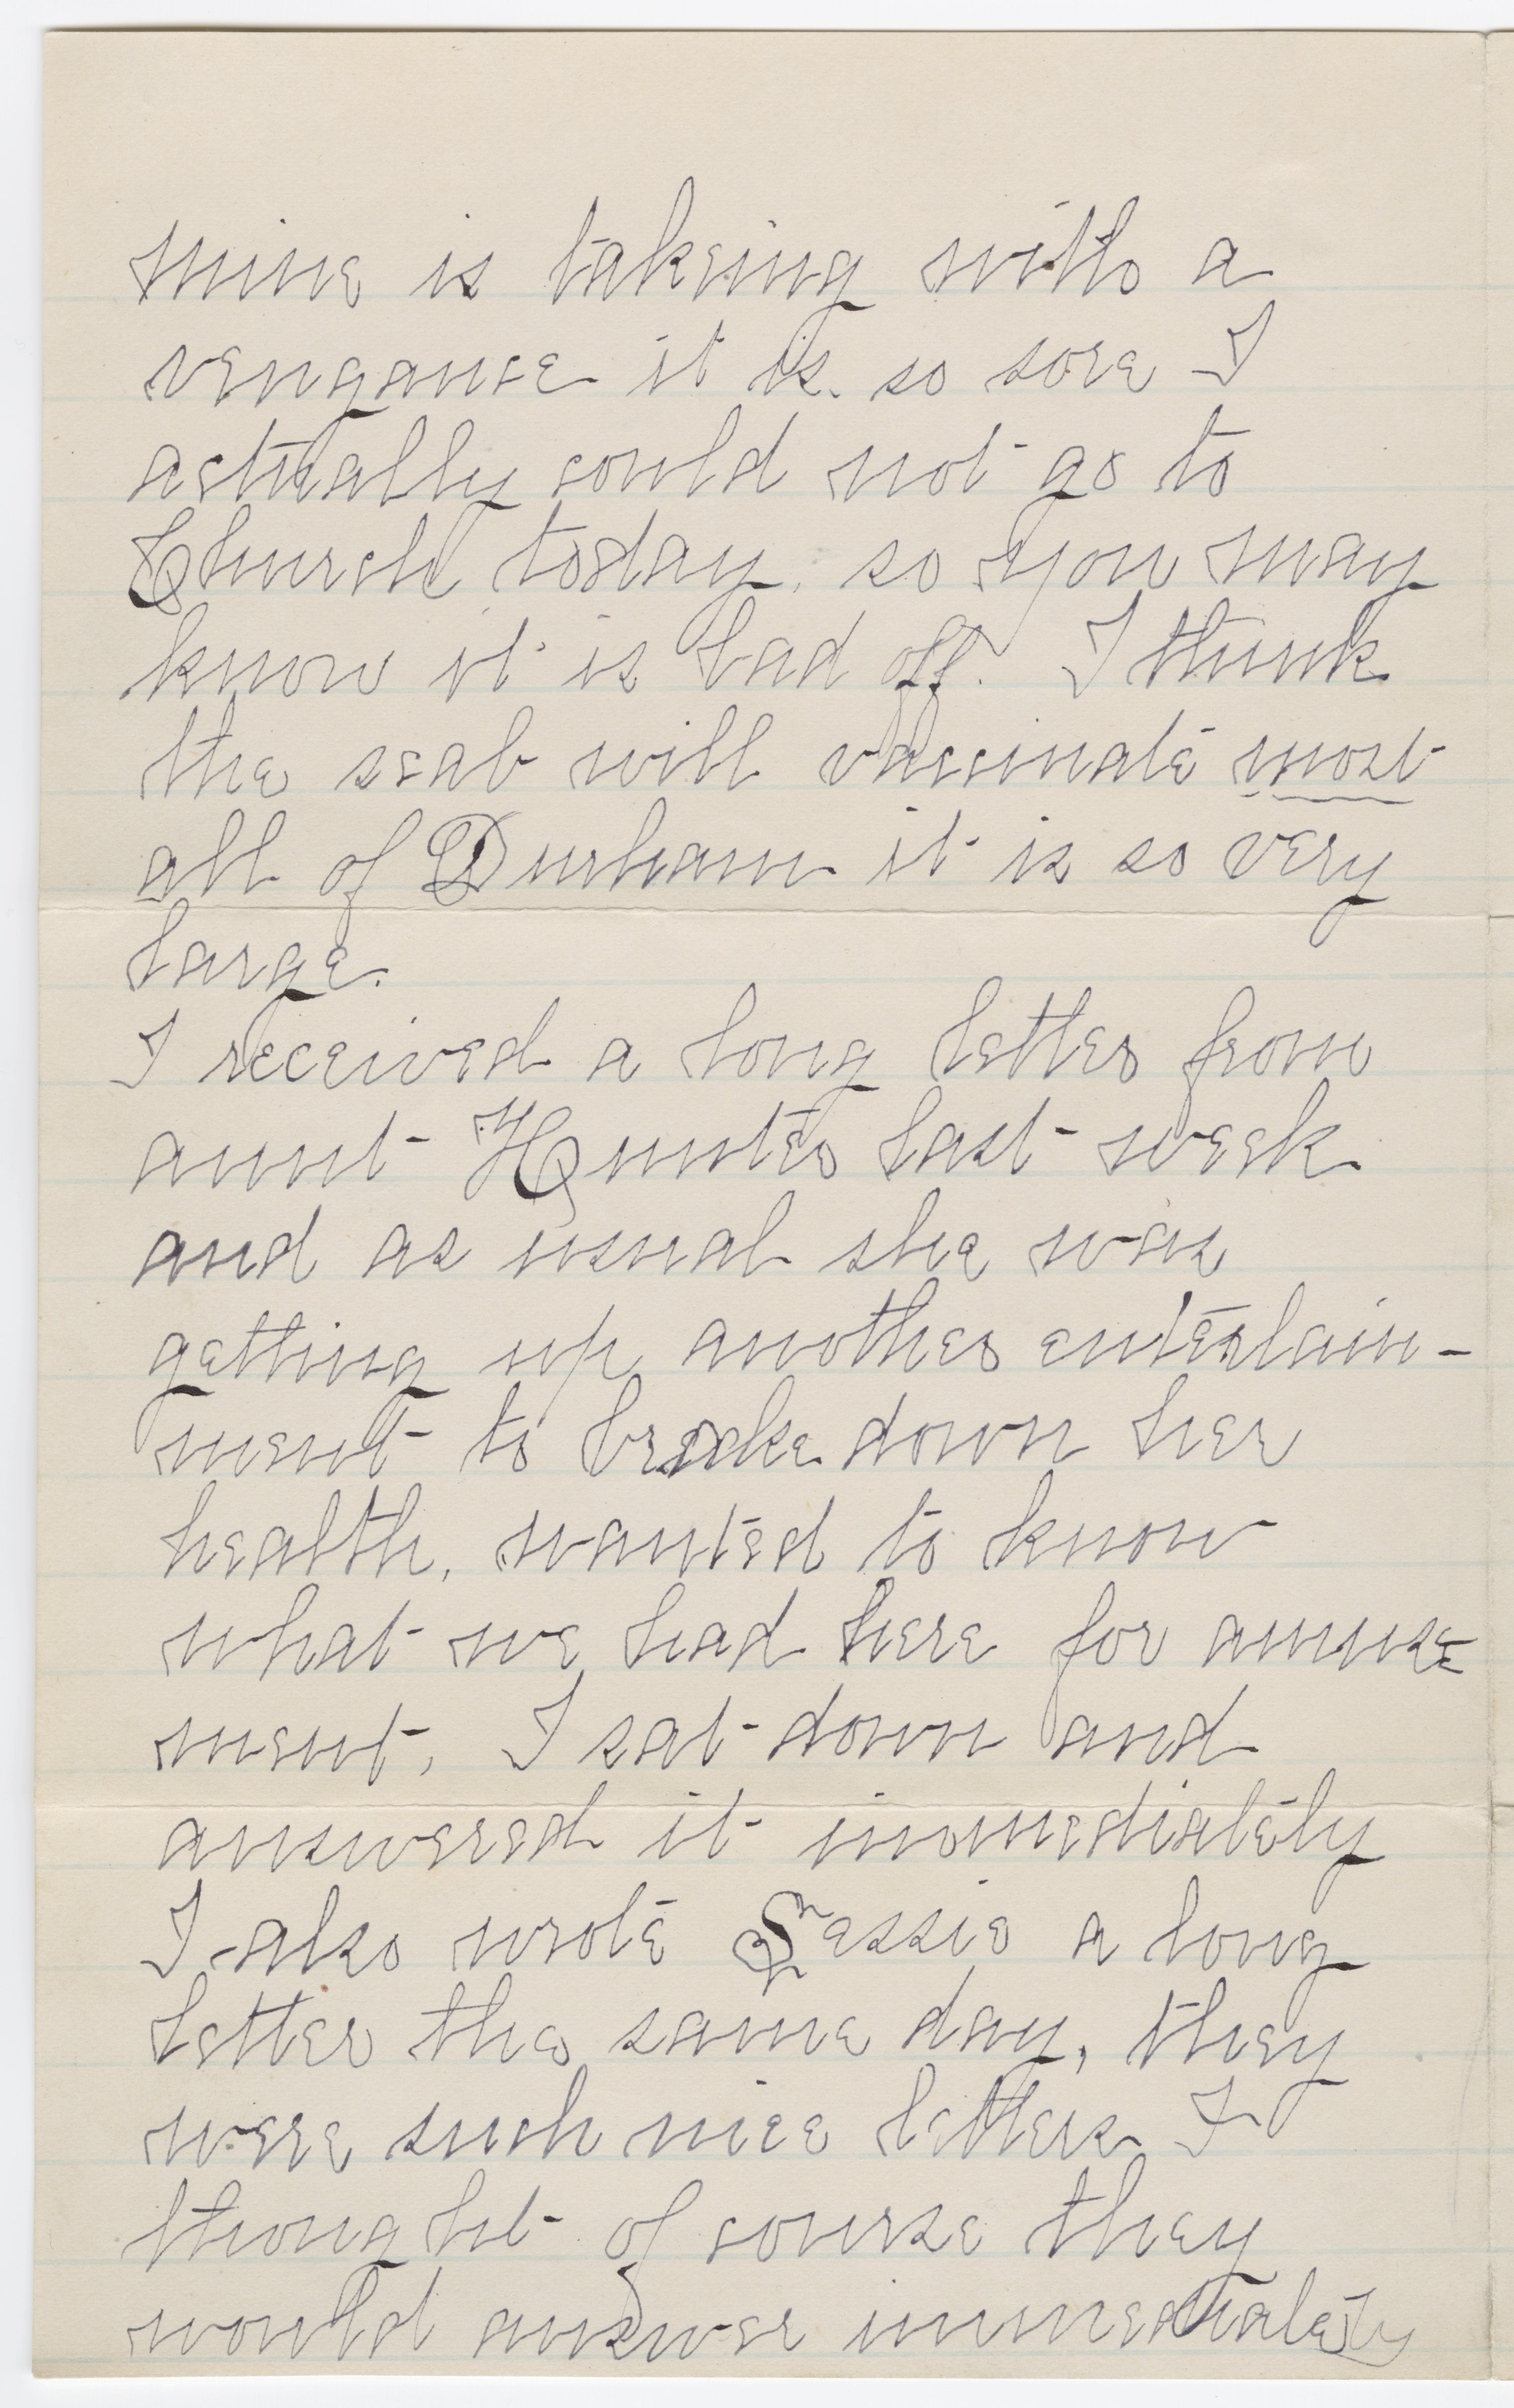 mine is takeing with a
vengance it is so sore I
actually could not go to
Church today, so you may
know it is bad off. I think
the scab will vaccinate most
all of Durham it is so very
large.
I received a long letter from
aunt Hunter last week
and as usual she was
getting up another entertain-
ment to brake down her
health, wanted to know
what we had here for amuse
ment, I sat down and
answered it immediately
I also wrote Lessie a long
letter the same day, they
were such nice letters I
thought of course they
would answer immediately